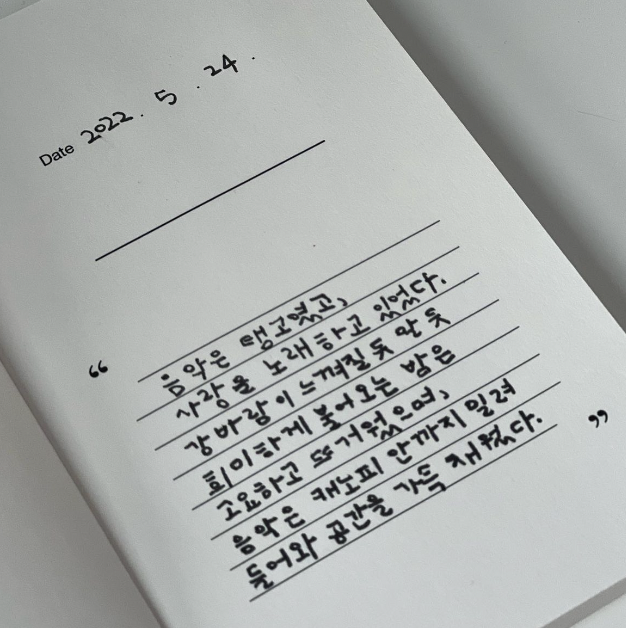 Date 2022. 5. 24.
“
음악은 탱고였고,
사랑을 노래하고 있었다.
강바람이 느껴질 듯 말 듯
희미하게 불어오는 밤은
고요하고 뜨거웠으며,
음악은 캐노피 안까지 밀려
들어와 공간을 가득 채웠다.
”